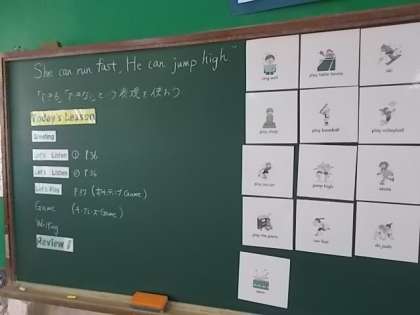 She can run fast, He can jump high
「できる」「できない」という表現を使おう
Today's Lesson
Greeting
Let's Listen ① P36
Let's Listen ② P36
Let's Play P37
Game
Writing
Review
sing well
play table tennis
ski
play shogi
play baseball
play volleyball
play soccer
jump high
skate
play the piano
run fast
do judo
swim